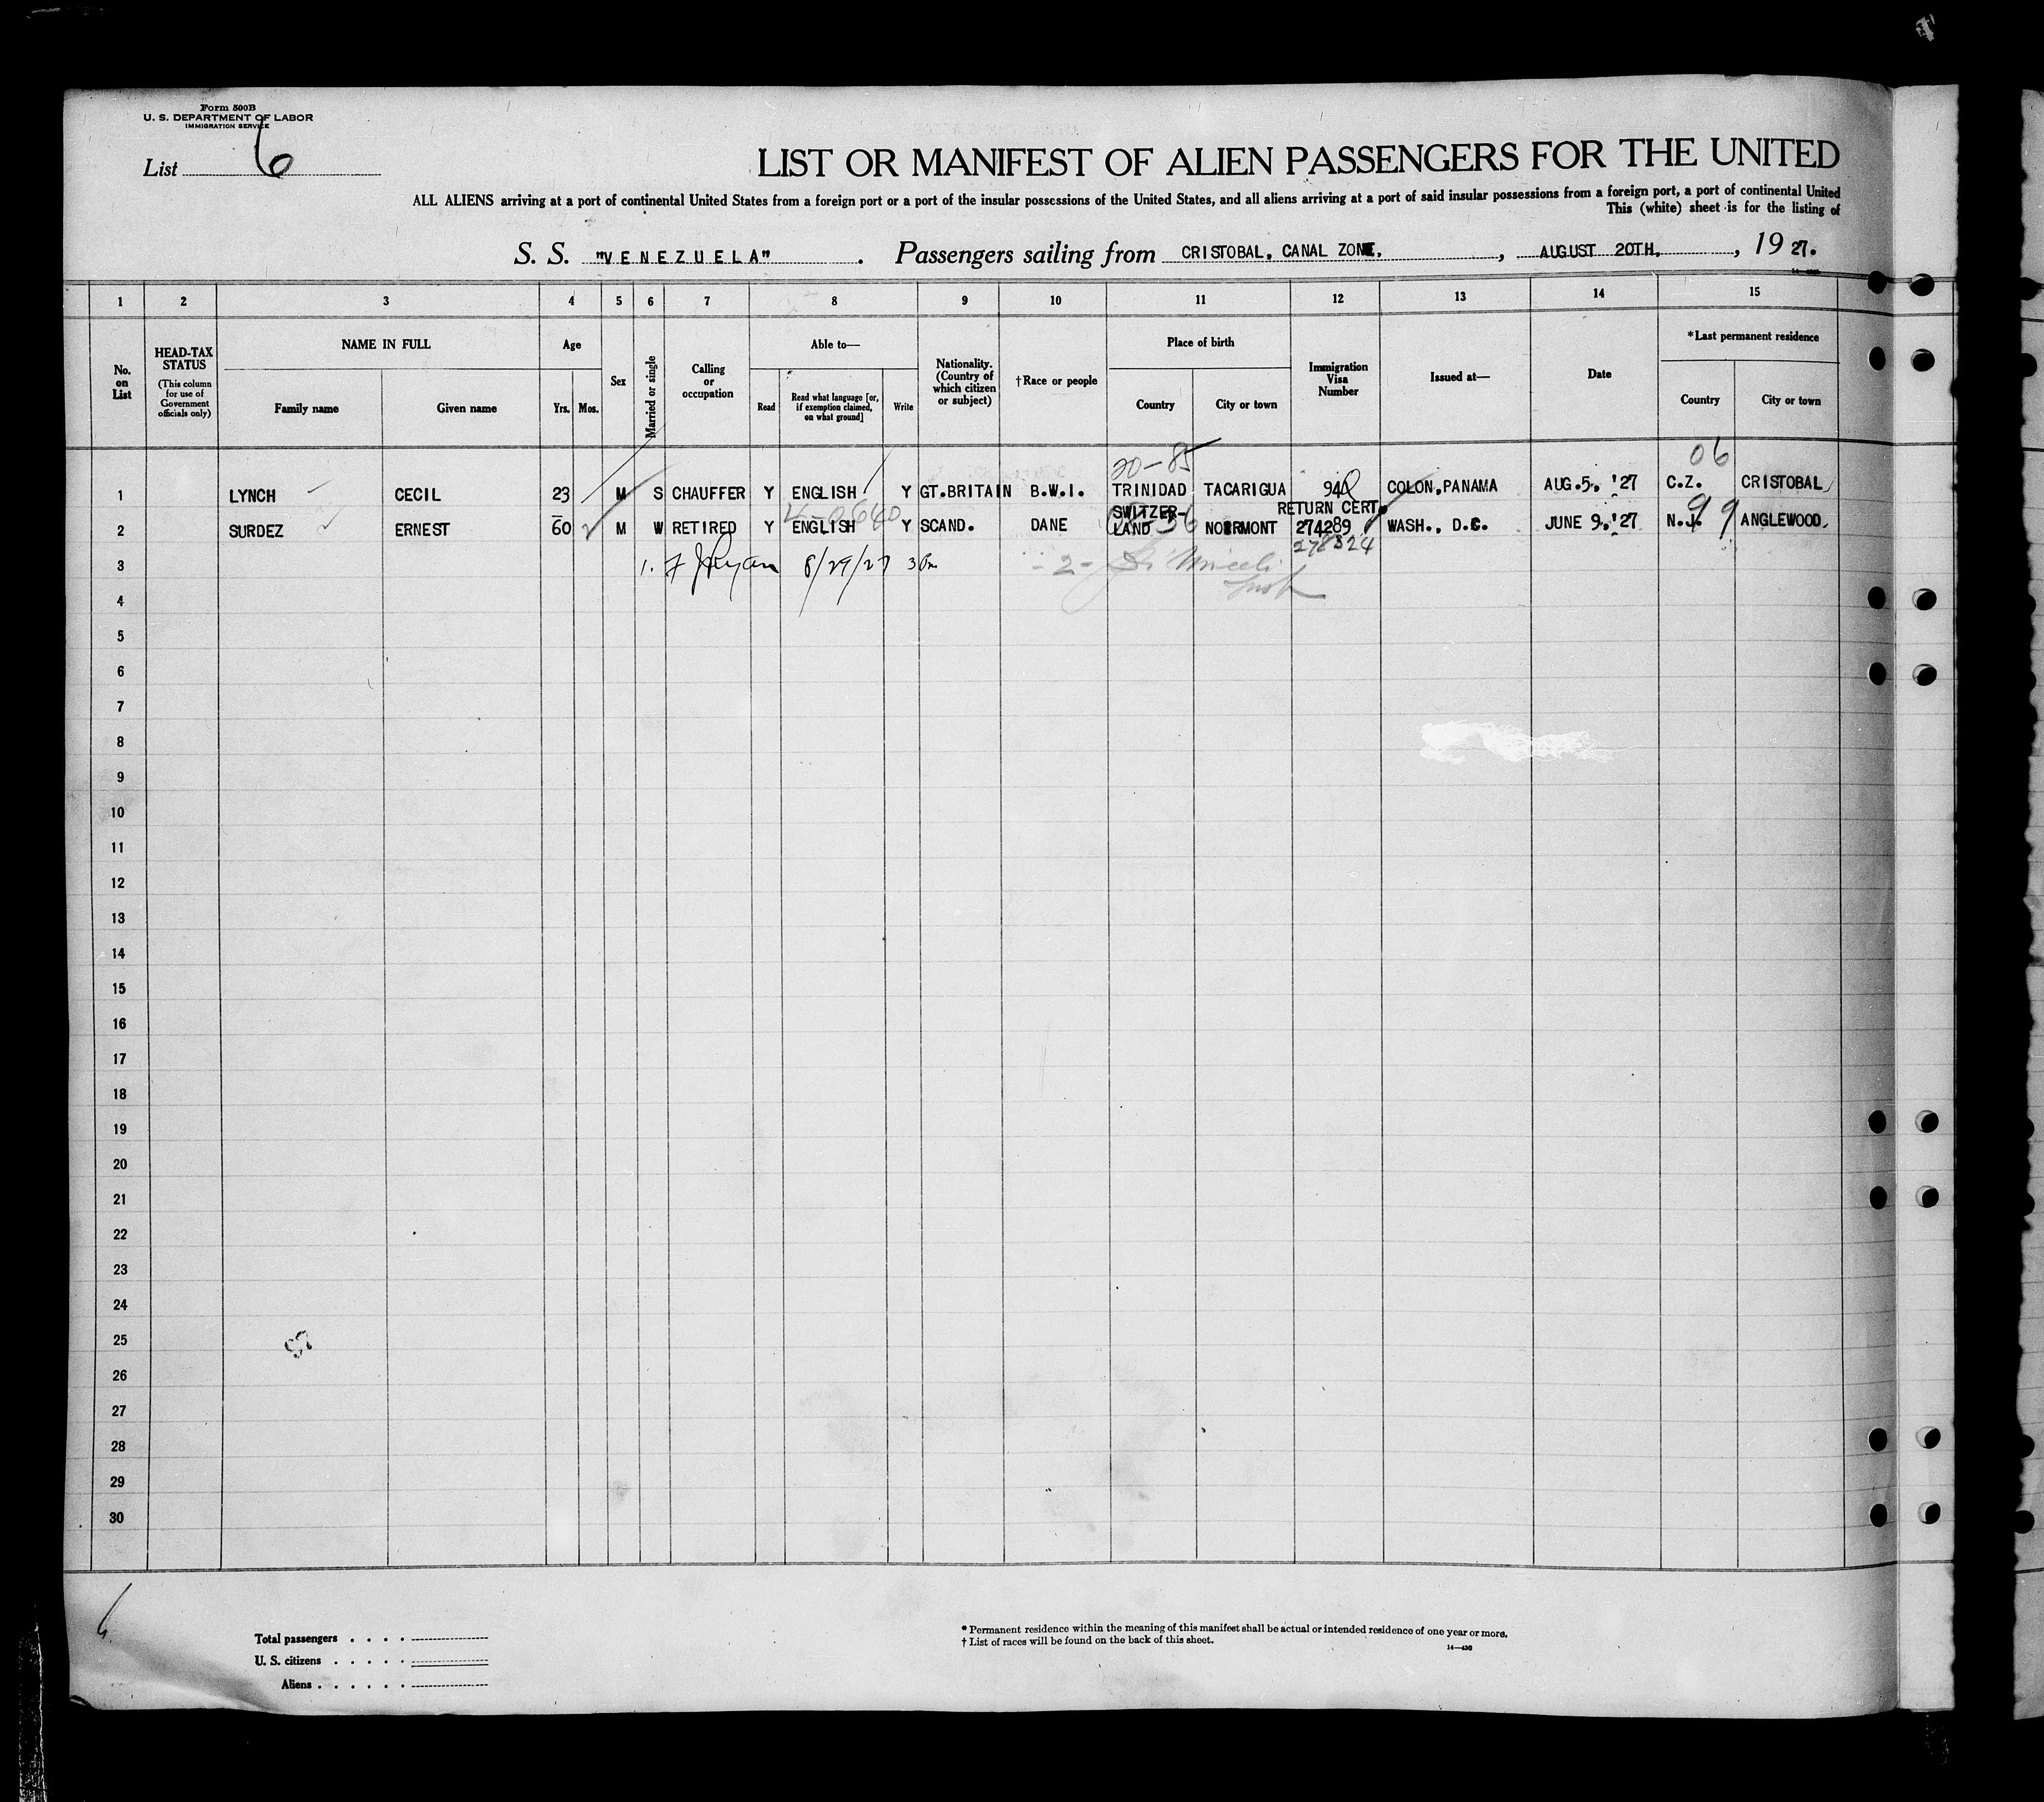 Form 500B
U. S. DEPARTMENT OF LABOR
IMMIGRATION SERVICE
List 6
LIST OR MANIFEST OF ALIEN PASSENGERS FOR THE UNITED
ALL ALIENS arriving at a port of continental United States from a foreign port or a port of the insular possessions of the United States, and all aliens arriving at a port of said insular possessions from a foreign port, a port of continental United
This (white) sheet is for the listing of
S. S. "VENEZUELA" . Passengers sailing from CRISTOBAL, CANAL ZONE, , AUGUST 20TH. , 19 27.
1 2 3 4 5 6 7 8 9 10 11 12 13 14 15
No. on List
HEAD-TAX STATUS
(This column for use of Government officials only)
NAME IN FULL
Family name Given name
Age
Yrs. Mos.
Sex
Married or single
Calling or occupation
Able to—
Read
Read what language [or, if exemption claimed, on what ground]
Write
Nationality. (Country of which citizen or subject)
†Race or people
Place of birth
Country City or town
Immigration Visa Number
Issued at—
Date
*Last permanent residence
Country City or town
20-85 06
1 LYNCH CECIL 23 M S CHAUFFER Y ENGLISH Y GT.BRITAIN B.W.I. TRINIDAD TACARIGUA 940 COLON,PANAMA AUG.5, '27 C.Z. CRISTOBAL
SWITZER- RETURN CERT.
2 SURDEZ ERNEST 60 M W RETIRED Y ENGLISH Y SCAND. DANE LAND 274289 WASH., D.C. JUNE 9,'27 N.J. 99 ANGLEWOOD
278324
3 1. F J Ryan 8/29/27 3 Pm -2-
4
5
6
7
8
9
10
11
12
13
14
15
16
17
18
19
20
21
22
23
24
25
26
27
28
29
30
Total passengers
U. S. citizens
Aliens
* Permanent residence within the meaning of this manifest shall be actual or intended residence of one year or more.
† List of races will be found on the back of this sheet.
14—430